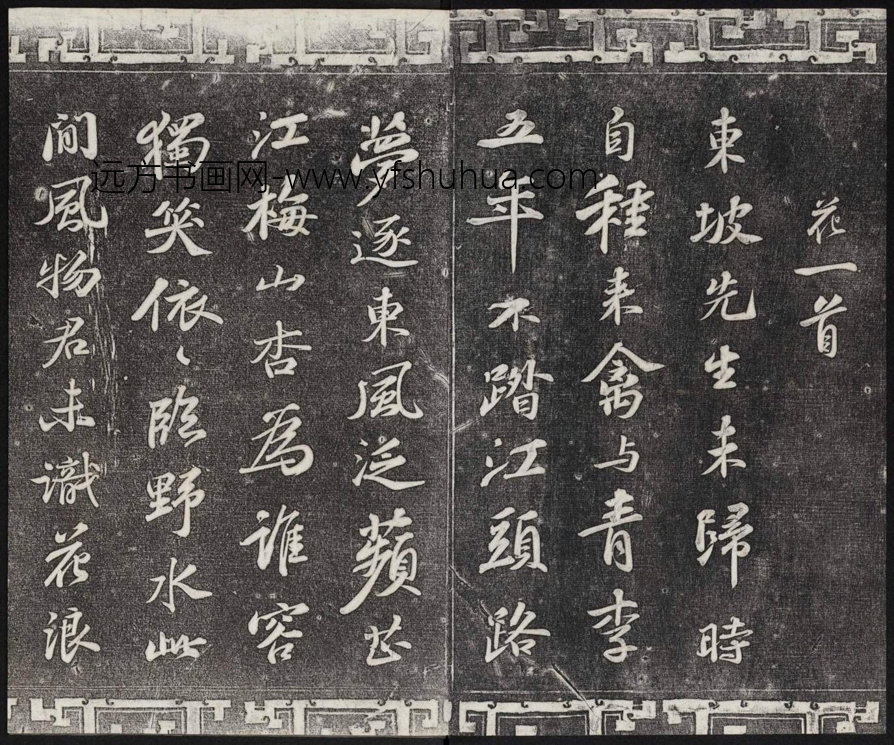 花一首
東坡先生未歸時
自種来禽与青李
五年不踏江頭路
夢逐東風泛蘋芷
江梅山杏為誰容
獨笑依〻臨野水此
間風物君未識花浪
远方书画网-www.yfshuhua.com